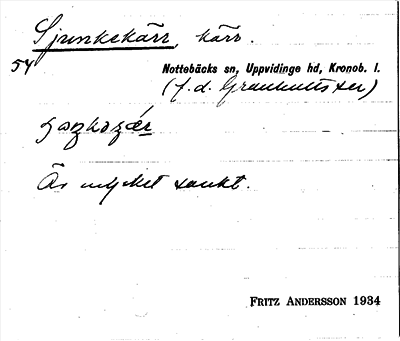 Sjunkekärr, kärr.
54
Nottebäcks sn, Uppvidinge hd, Kronob. l.
(f.d. Granhults ser)
Är mycket sankt.
FRITZ ANDERSSON 1934